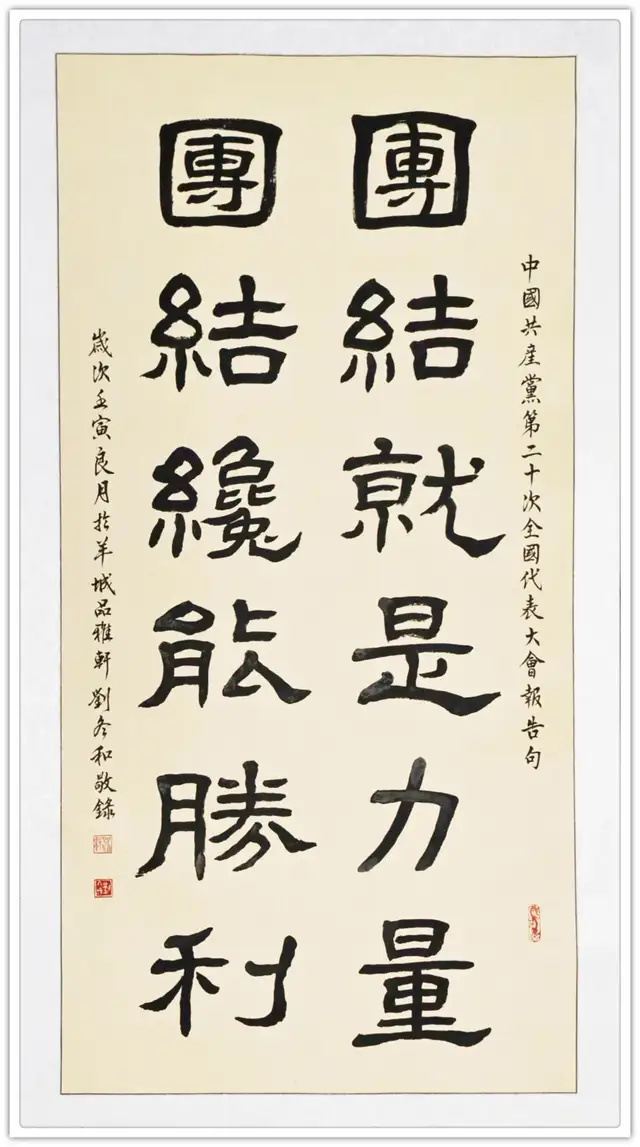 中國共產黨第二十次全國代表大會報告句
團結就是力量
團結纔能勝利
歲次壬寅良月於羊城品雅軒劉冬和敬錄